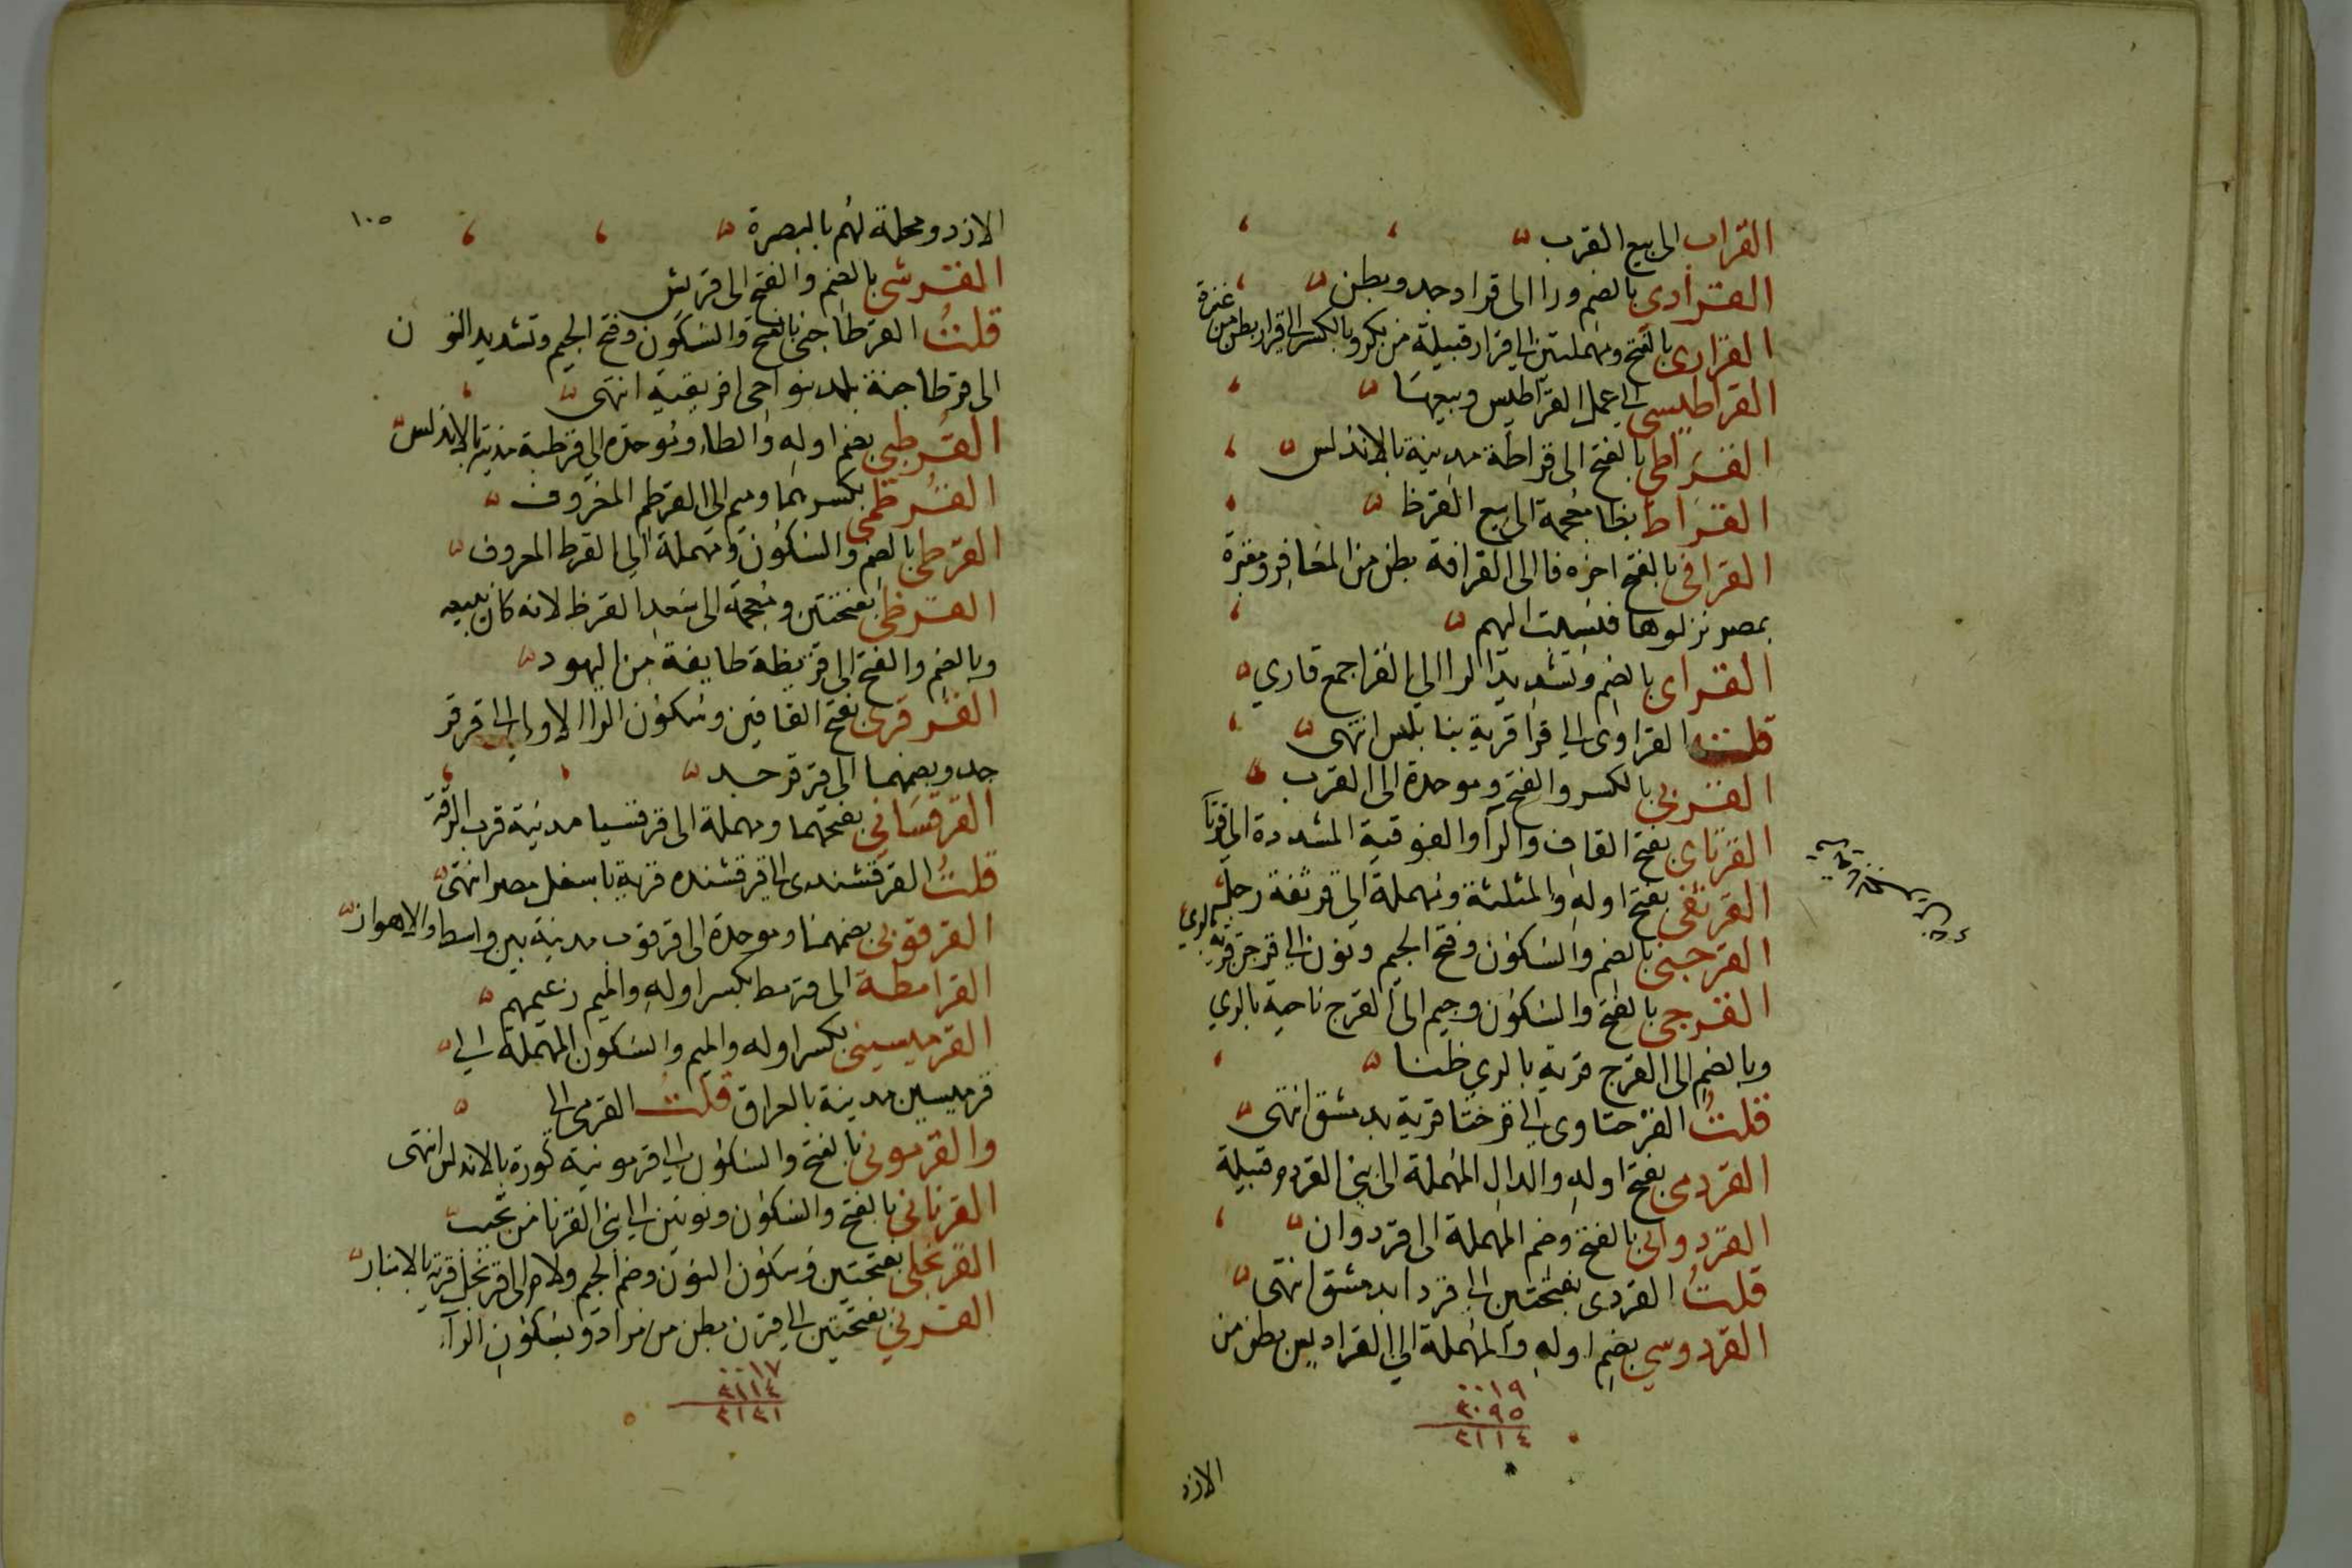 القراب الى بيع القرب
القرادي بالضم ورا الى قراد جد وبطن
القراري بالفتح ومهملتين الى قرار قبيلة من بكر وبالكسر الى قرار بطن من عنزة
القراطيسي الى عمل القراطيس وبيعها
القراطي بالفتح الى قراطة مدينة بالاندلس
القراظ بظا معجمة الى بيع القرظ
القرافي بالفتح اخره فا الى القرافة بطن من المعافر ومقبرة
بمصر نزلوها فنسبت اليهم
القراى بالضم وتشديد الرا الى القرا جمع قاري
قلت القراوى الى قرا قرية بنابلس انتهى
القربى بالكسر والفتح وموحدة الى القرب
القرتاى بفتح القاف والرآ والفوقية المشددة الى قرتا
القرثعى بفتح اوله والمثلثة ومهملة الى قرثعة رجل
القرجنى بالضم والسكون وفتح الجيم ونون الى قرجن قرية بالري
القرجى بالفتح والسكون وجيم الى القرج ناحية بالري
وبالضم الى القرج قرية بالري ظنا
قلت القرحتاوى الى قرحتا قرية بدمشق انتهى
القردمى بفتح اوله والدال المهملة الى بني القردم قبيلة
القردوانى بالفتح وضم المهملة الى قردوان
قلت القردى بفتحتين الى قردا بدمشق انتهى
القردوسي بضم اوله والمهملة الى القراديس بطن من
٠٠١٩
٣٠٩٥
٣١١٤
الازد
١٠٥
الازد ومحلة لهم بالبصرة
القرشى بالضم والفتح الى قريش
قلت القرطاجنى بالفتح والسكون وفتح الجيم وتشديد النون
الى قرطاجنة بلد بنواحى افريقية انتهى
القرطبى بضم اوله والطاء وموحدة الى قرطبة مدينة بالاندلس
القرطمى بكسرهما وميم الى القرطم المعروف
القرطى بالضم والسكون ومهملة الى القرط المعروف
القرظى بفتحتين ومعجمة الى سعد القرظ لانه كان يبيعه
وبالضم والفتح الى قريظة طايفة من اليهود
القرقرى بفتح القافين وسكون الرا الاولى الى قرقر
جد وبضمهما الى قرقر جد
القرقسانى بفتحهما ومهملة الى قرقسيا مدينة قرب الرقة
قلت القرقشندى الى قرقشنده قرية باسفل مصر انتهى
القرقوبى بضمهما وموحدة الى قرقوب مدينة بين واسط والاهواز
القرامطة الى قرمط بكسر اوله والميم زعيمهم
القرميسينى بكسر اوله والميم والسكون المهملة الى
قرميسين مدينة بالعراق قلت القرمى الى
والقرمونى بالفتح والسكون الى قرمونية كورة بالاندلس انتهى
القرنانى بالفتح والسكون ونونين الى بنى القرنا من تجيب
القرنجلى بفتحتين وسكون النون وضم الجيم ولام الى قرنجل قرية بالانبار
القرني بفتحتين الى قرن بطن من مراد وبسكون الرآء
٠٠١٧
٣١١٤
٣١٣١